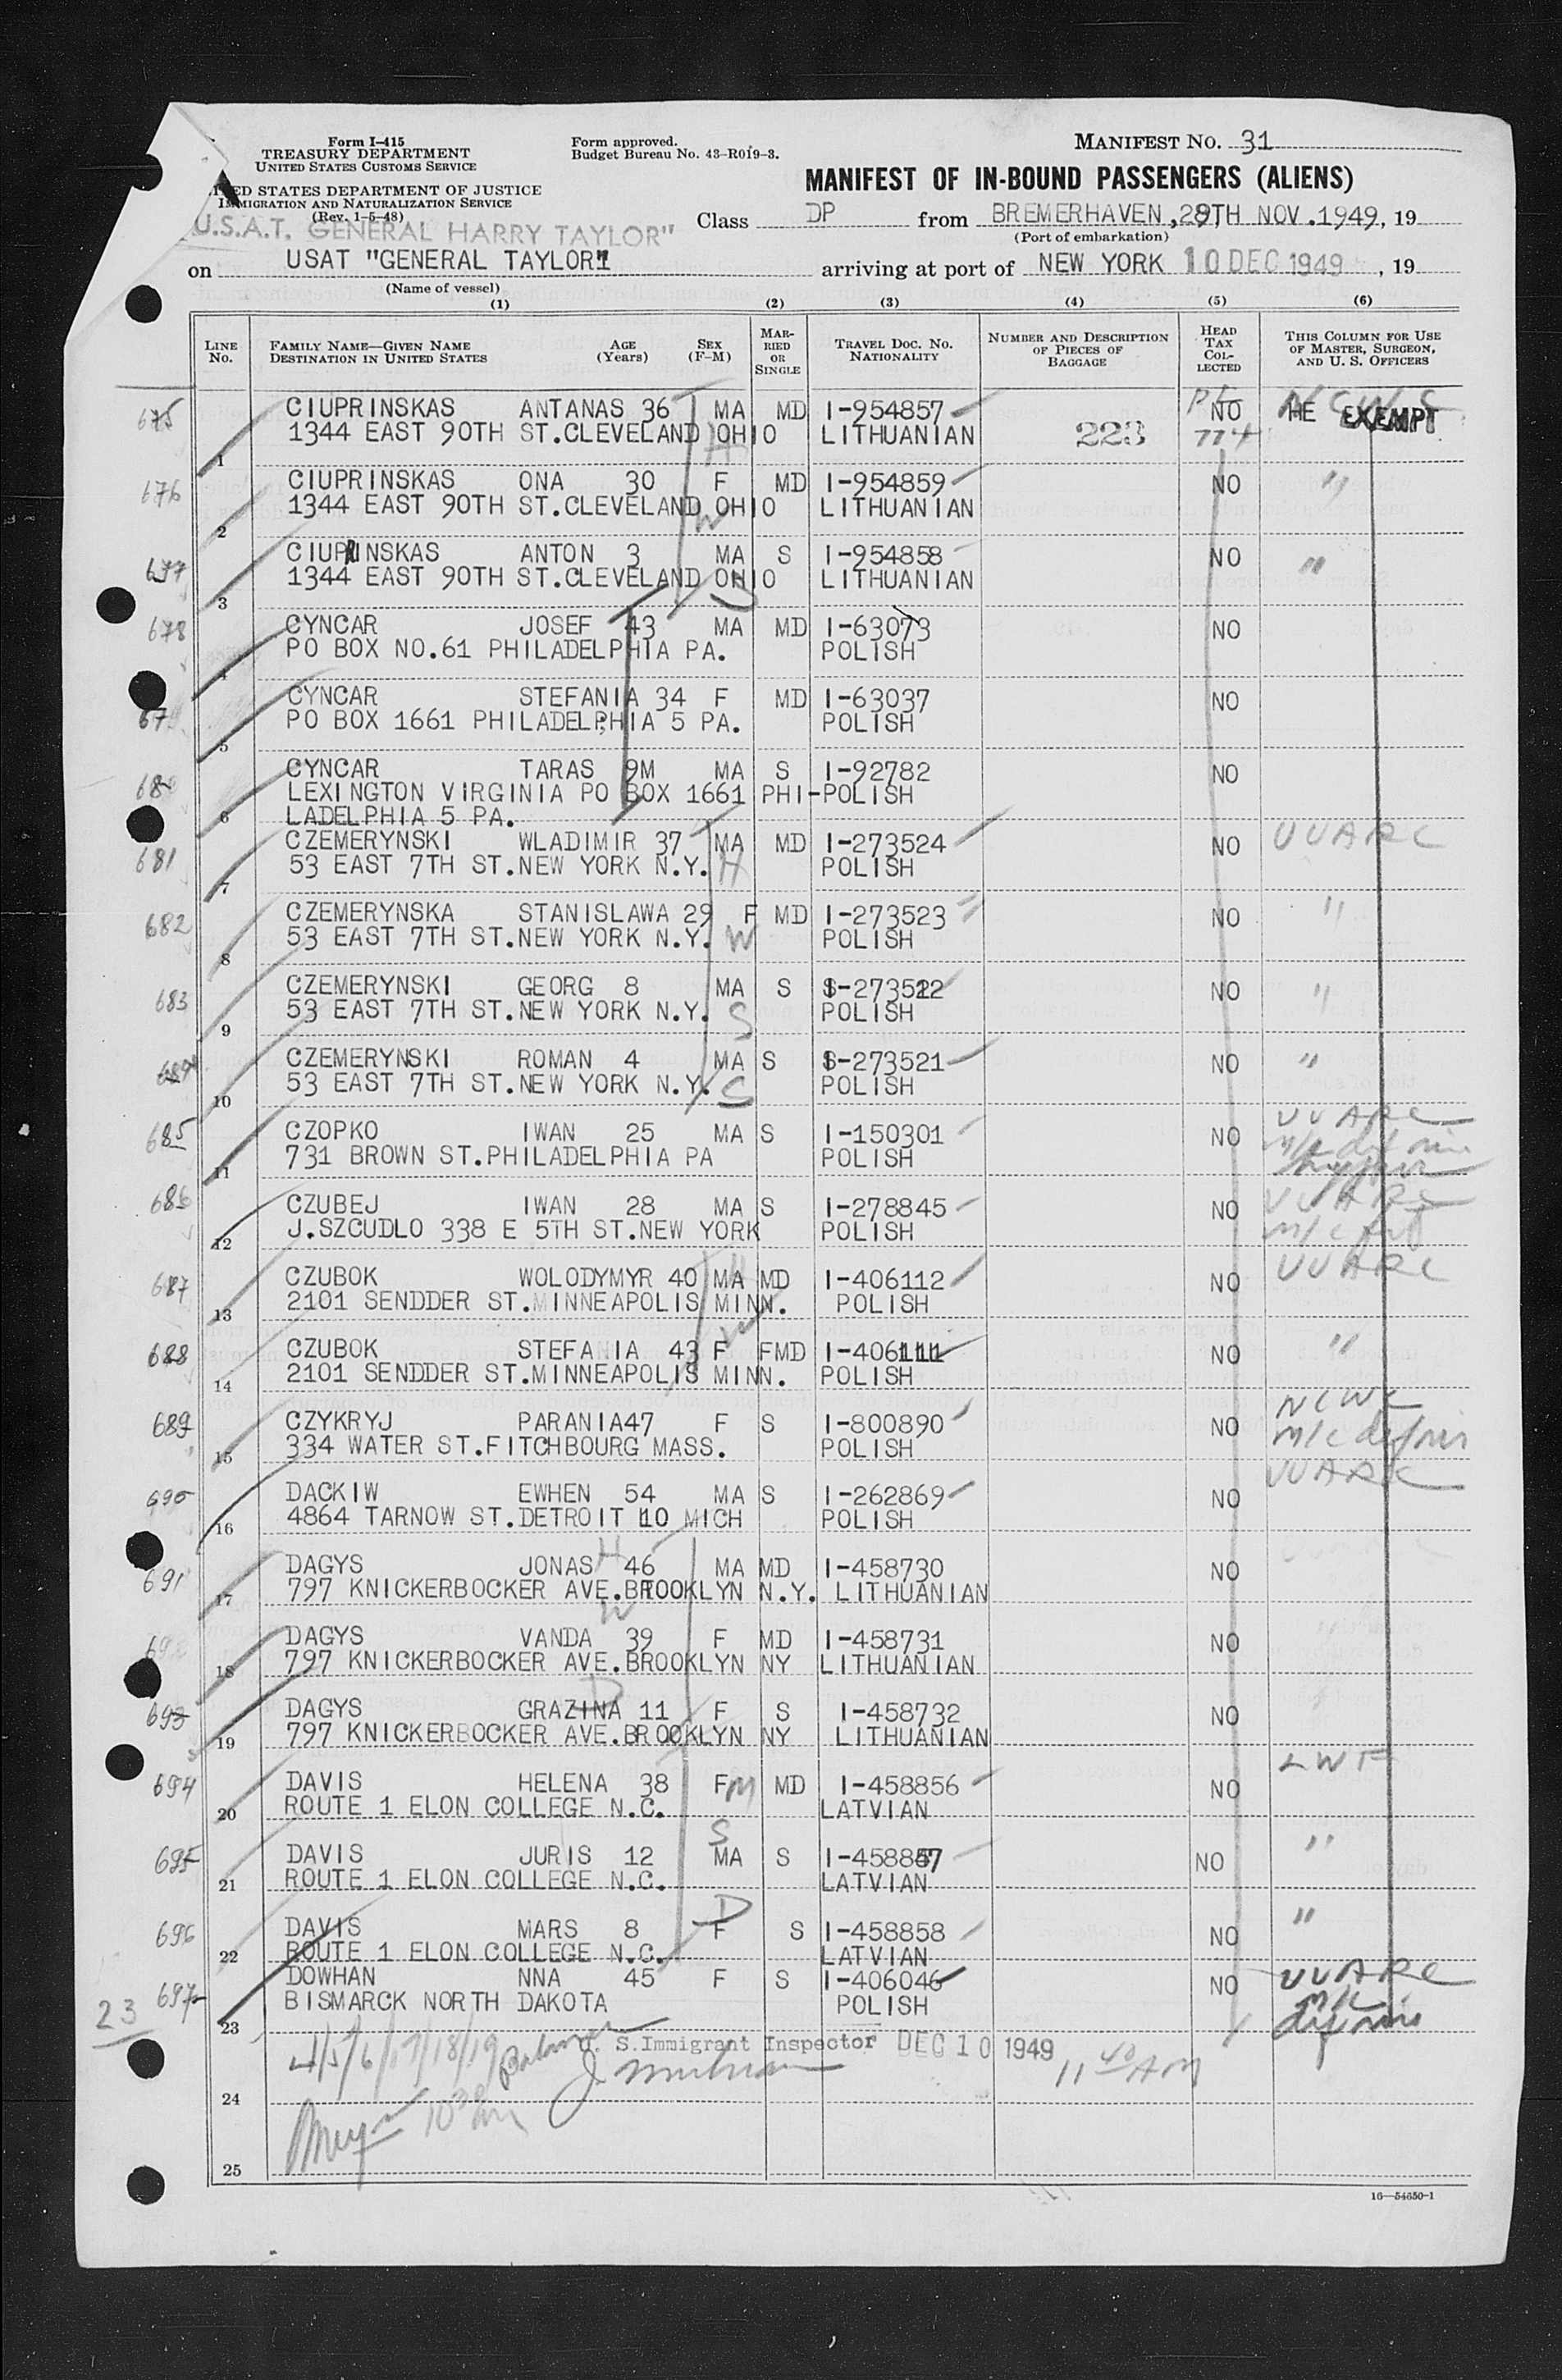 Form I-415
TREASURY DEPARTMENT
UNITED STATES CUSTOMS SERVICE
Form approved.
Budget Bureau No. 43-R019-3.
MANIFEST NO. 31
ED STATES DEPARTMENT OF JUSTICE
IMMIGRATION AND NATURALIZATION SERVICE
(Rev. 1-5-48)
MANIFEST OF IN-BOUND PASSENGERS (ALIENS)
U.S.A.T. GENERAL HARRY TAYLOR"
Class DP from BREMERHAVEN, 29TH NOV. 1949, 19
(Port of embarkation)
on USAT "GENERAL TAYLOR" arriving at port of NEW YORK 10 DEC 1949, 19
(Name of vessel)
(1) (2) (3) (4) (5) (6)
LINE No. FAMILY NAME—GIVEN NAME DESTINATION IN UNITED STATES AGE (Years) SEX (F-M) MARRIED OR SINGLE TRAVEL DOC. NO. NATIONALITY NUMBER AND DESCRIPTION OF PIECES OF BAGGAGE HEAD TAX COLLECTED THIS COLUMN FOR USE OF MASTER, SURGEON, AND U. S. OFFICERS
675 CIUPRINSKAS ANTANAS 36 MA MD I-954857 NO HE EXEMPT
1 1344 EAST 90TH ST.CLEVELAND OHIO LITHUANIAN 223
H
676 CIUPRINSKAS ONA 30 F MD I-954859 NO "
2 1344 EAST 90TH ST.CLEVELAND OHIO LITHUANIAN
W
677 CIUPRINSKAS ANTON 3 MA S I-954858 NO "
3 1344 EAST 90TH ST.CLEVELAND OHIO LITHUANIAN
S
678 CYNCAR JOSEF 43 MA MD I-63073 NO
4 PO BOX NO.61 PHILADELPHIA PA. POLISH
67 CYNCAR STEFANIA 34 F MD I-63037 NO
5 PO BOX 1661 PHILADELPHIA 5 PA. POLISH
68 CYNCAR TARAS 9M MA S I-92782 NO
6 LEXINGTON VIRGINIA PO BOX 1661 PHI-POLISH
LADELPHIA 5 PA.
681 CZEMERYNSKI WLADIMIR 37 MA MD I-273524 NO UUARC
7 53 EAST 7TH ST.NEW YORK N.Y. H POLISH
682 CZEMERYNSKA STANISLAWA 29 F MD I-273523 NO "
8 53 EAST 7TH ST.NEW YORK N.Y. W POLISH
683 CZEMERYNSKI GEORG 8 MA S I-273522 NO "
9 53 EAST 7TH ST.NEW YORK N.Y. S POLISH
684 CZEMERYNSKI ROMAN 4 MA S I-273521 NO "
10 53 EAST 7TH ST.NEW YORK N.Y. S POLISH
685 CZOPKO IWAN 25 MA S I-150301 NO UUARC
11 731 BROWN ST.PHILADELPHIA PA POLISH
686 CZUBEJ IWAN 28 MA S I-278845 NO UUARC
12 J.SZCUDLO 338 E 5TH ST.NEW YORK POLISH
687 CZUBOK WOLODYMYR 40 MA MD I-406112 NO UUARC
13 2101 SENDDER ST.MINNEAPOLIS MINN. POLISH
W
688 CZUBOK STEFANIA 43 F FMD I-406111 NO "
14 2101 SENDDER ST.MINNEAPOLIS MINN. POLISH
689 CZYKRYJ PARANIA47 F S I-800890 NO NCWC
15 334 WATER ST.FITCHBOURG MASS. POLISH
690 DACKIW EWHEN 54 MA S I-262869 NO UUARC
16 4864 TARNOW ST.DETROIT 10 MICH POLISH
691 DAGYS JONAS H 46 MA MD I-458730 NO
17 797 KNICKERBOCKER AVE.BROOKLYN N.Y. LITHUANIAN
W
692 DAGYS VANDA 39 F MD I-458731 NO
18 797 KNICKERBOCKER AVE.BROOKLYN NY LITHUANIAN
D
693 DAGYS GRAZINA 11 F S I-458732 NO
19 797 KNICKERBOCKER AVE.BROOKLYN NY LITHUANIAN
694 DAVIS HELENA 38 F M MD I-458856 NO LWF
20 ROUTE 1 ELON COLLEGE N.C. LATVIAN
S
695 DAVIS JURIS 12 MA S I-458857 NO "
21 ROUTE 1 ELON COLLEGE N.C. LATVIAN
D
696 DAVIS MARS 8 F S I-458858 NO "
22 ROUTE 1 ELON COLLEGE N.C. LATVIAN
697 DOWHAN NNA 45 F S I-406046 NO UUARC
23 BISMARCK NORTH DAKOTA POLISH
23
4/5/6/17/18/19 U. S. Immigrant Inspector DEC 10 1949 11 40 AM
24
25
16—54650-1